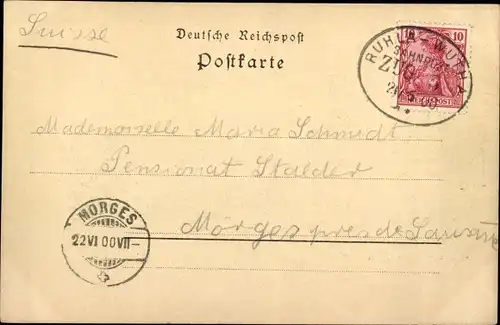 Suisse
Deutsche Reichspost
Postkarte
10 10
RUHLA - WUTHA
BAHNPOST
ZUG
Mademoiselle Maria Schmidt
Pensionat Stalder
Morges pres de Lausanne
MORGES
22 VI 00 VII-